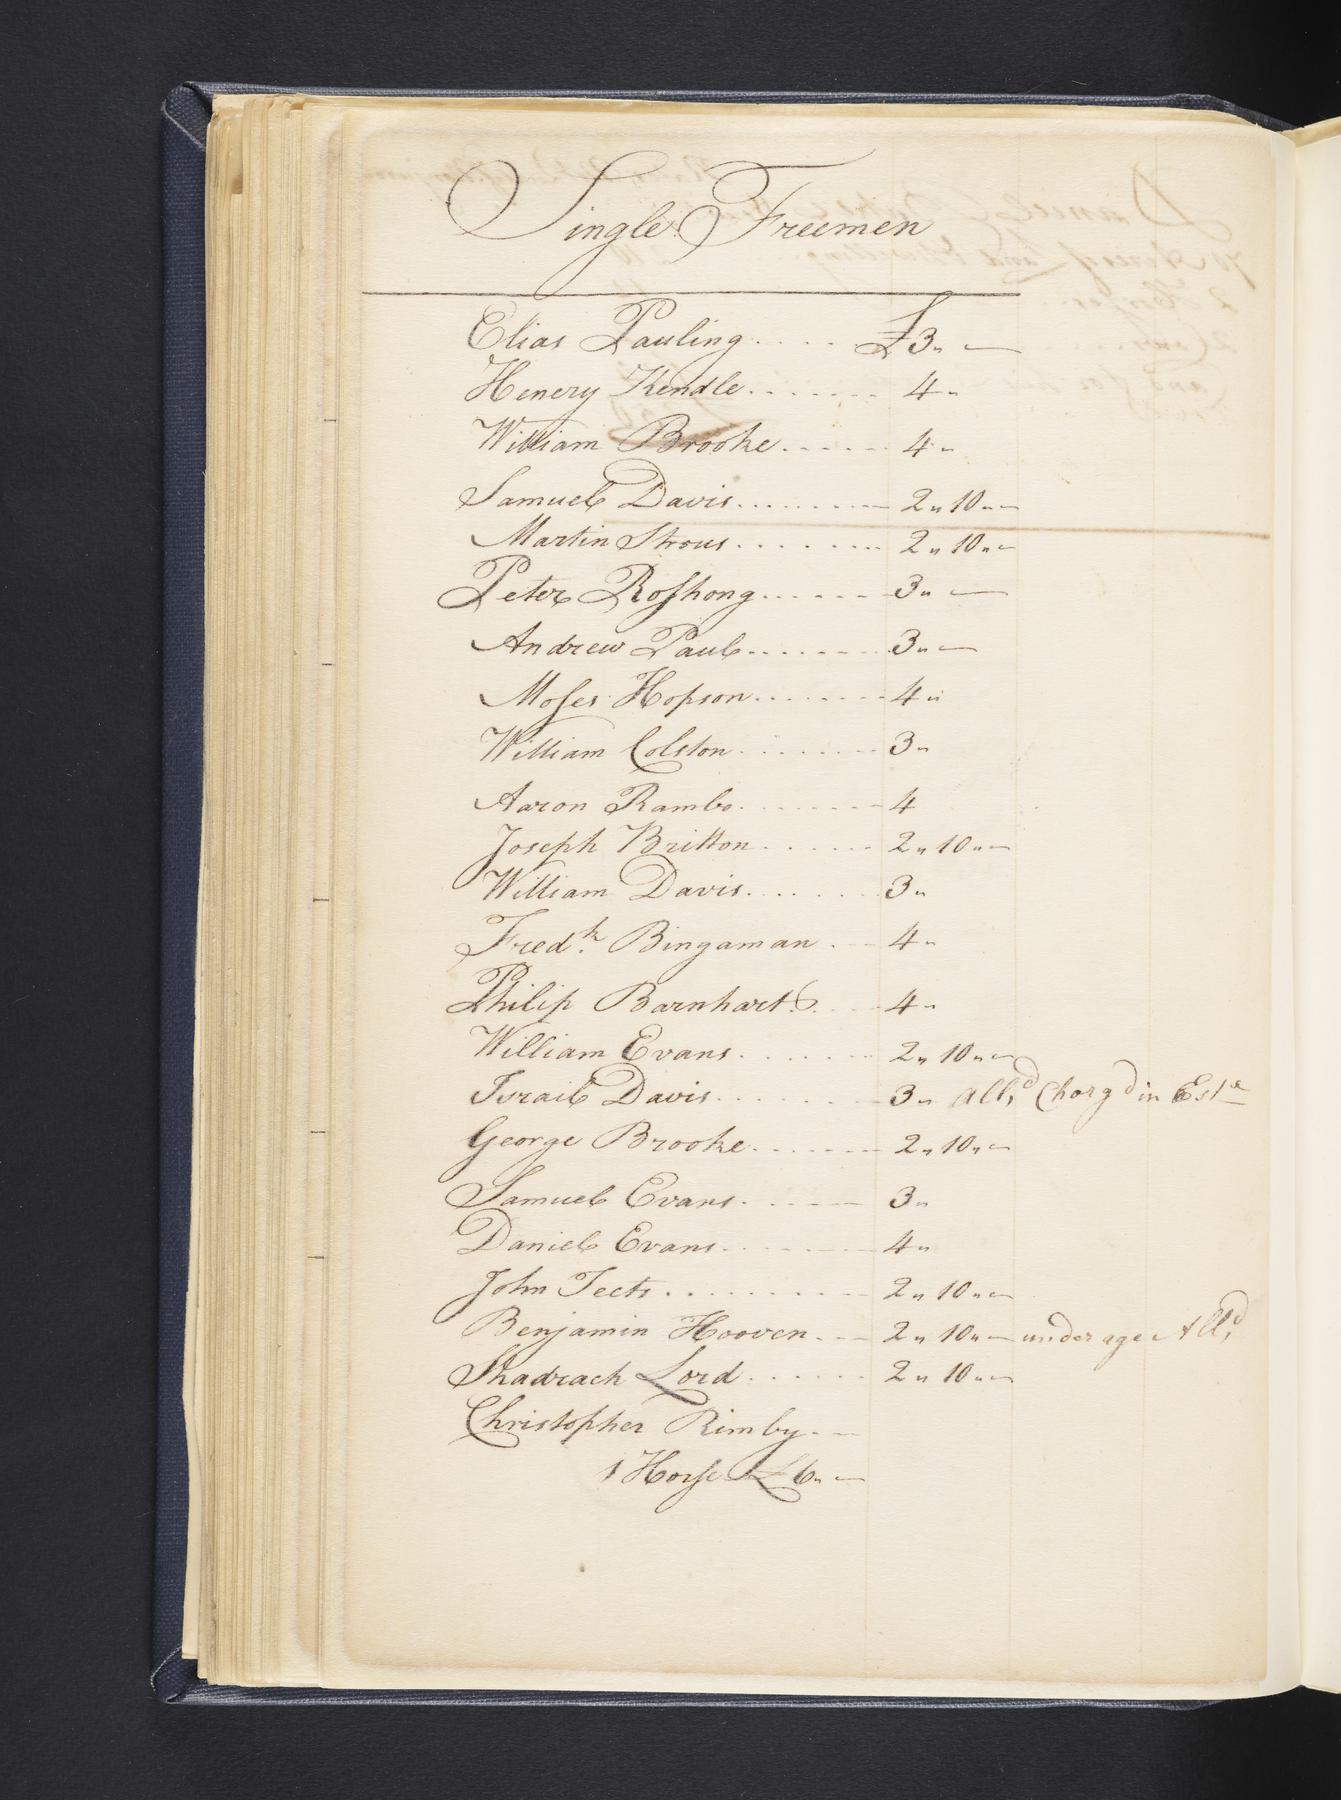 Single Freemen
Elias Pauling .... £3 " —
Henery Kendle ....... 4 "
William Brooke ...... 4 "
Samuel Davis ........ 2 " 10 " —
Martin Strous ....... 2 " 10 " —
Peter Roſhong ...... 3 " —
Andrew Paul ....... 3 " —
Moſes Hopson ....... 4 "
William Colston ....... 3 "
Aaron Rambo ....... 4
Joseph Britton ...... 2 " 10 " —
William Davis ....... 3 "
Fredk. Bingaman . — 4 "
Philip Barnhart .... 4 "
William Evans ....... 2 " 10 " —
Israil Davis ....... 3 " Alld Chargd in Este
George Brooke ....... 2 " 10 " —
Samuel Evans ..... 3 "
Daniel Evans ....... 4 "
John Teets .......... 2 " 10 " —
Benjamin Hooven . — 2 " 10 " — under age Alld
Shadrach Lord ...... 2 " 10 " —
Christopher Rimby . —
1 Horſe £6 " —